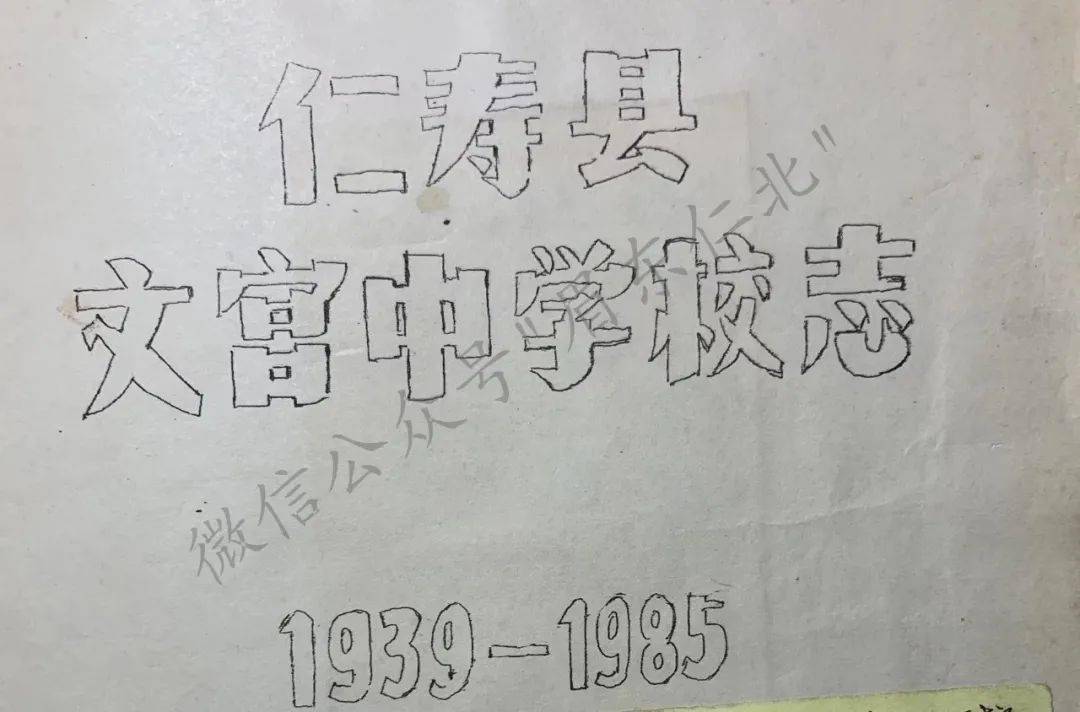 仁寿县
文富中学校志
1939-1985
微信公众号"眉东仁北"